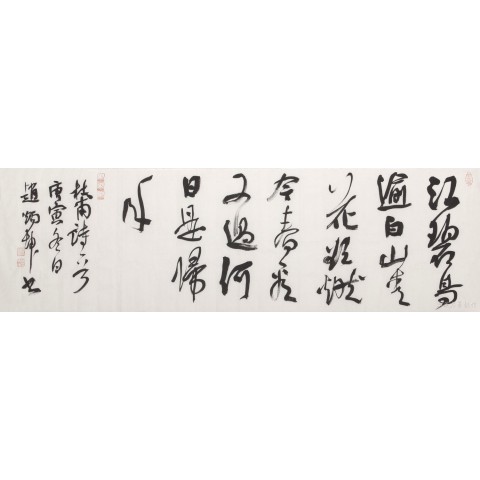 江碧鳥
逾白山青
花欲燃
今春看
又過何
日是歸
年
杜甫詩
庚寅冬日
趙